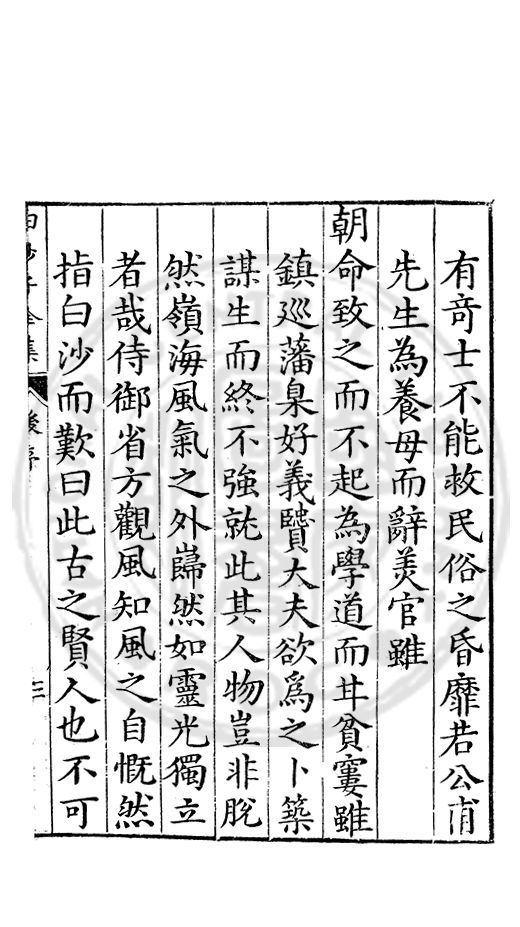 有竒士不能救民俗之昏靡若公甫
先生為養母而辭美官雖
朝命致之而不起為學道而甘貧窶雖
鎮廵藩臬好義賢大夫欲爲之卜築
謀生而終不強就此其人物豈非脫
然嶺海風氣之外巋然如靈光獨立
者哉侍御省方觀風知風之自慨然
指白沙而歎曰此古之賢人也不可
白沙子全集
後序
三